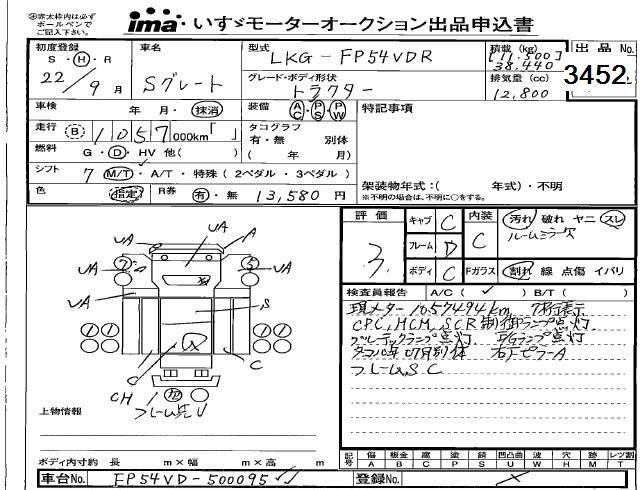 ※赤太枠内は必ず
ボールペンで
ご記入下さい。
ima いすゞモーターオークション出品申込書
初度登録
S・H・R
22/9月
車名
Sグレート
型式
LKG-FP54VDR
グレード・ボディ形状
トラクター
積載 (kg)
[11,500]
38,440
排気量 (cc)
12,800
出品 No.
3452
車検 年 月・抹消
装備 AC PS PW
特記事項
走行 B 1057 000km「 」
タコグラフ
有・無 別体
( 年 月)
燃料 G・D・HV 他( )
シフト 7 M/T・A/T・特殊(2ペダル・3ペダル)
架装物年式:( 年式)・不明
※不明の場合は、不明に○をする。
色 指定 R券 有・無 13,580 円
評価
3
キャブ C
フレーム D
ボディ C
内装 C
汚れ 破れ ヤニ スレ
ルームミラー欠
Fガラス 割れ 線 点傷 イバリ
検査員報告 A/C( ✓ ) B/T( )
現メーター1057494km 7桁表示
CPC,MCM,SCR制御ランプ点灯
フレームS C
UA UA A
UA UA
UA
S
C C
CH
フレーム先U
上物情報
ボディ内寸約 長 m×幅 m×高 m
記号 傷A 板金B 腐C 塗P 錆S 凹凸曲U 波W 穴H 跡M レツ割T
車台No. FP54VD-500095
登録No.